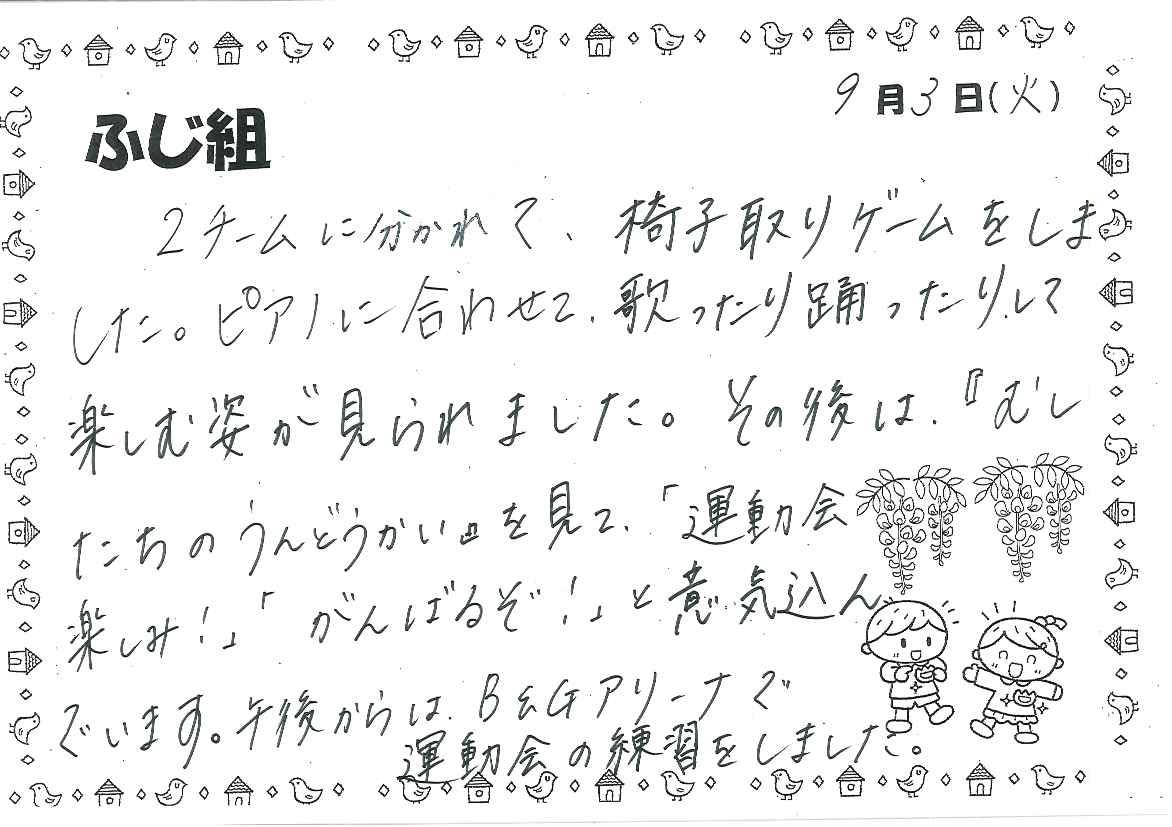 9月3日(火)
ふじ組
2チームに分かれて、椅子取りゲームをしま
した。ピアノに合わせて、歌ったり踊ったりして
楽しむ姿が見られました。その後は、『むし
たちのうんどうかい』を見て、「運動会
楽しみ!」「がんばるぞ!」と意気込ん
でいます。午後からは、B&Gアリーナで
運動会の練習をしました。